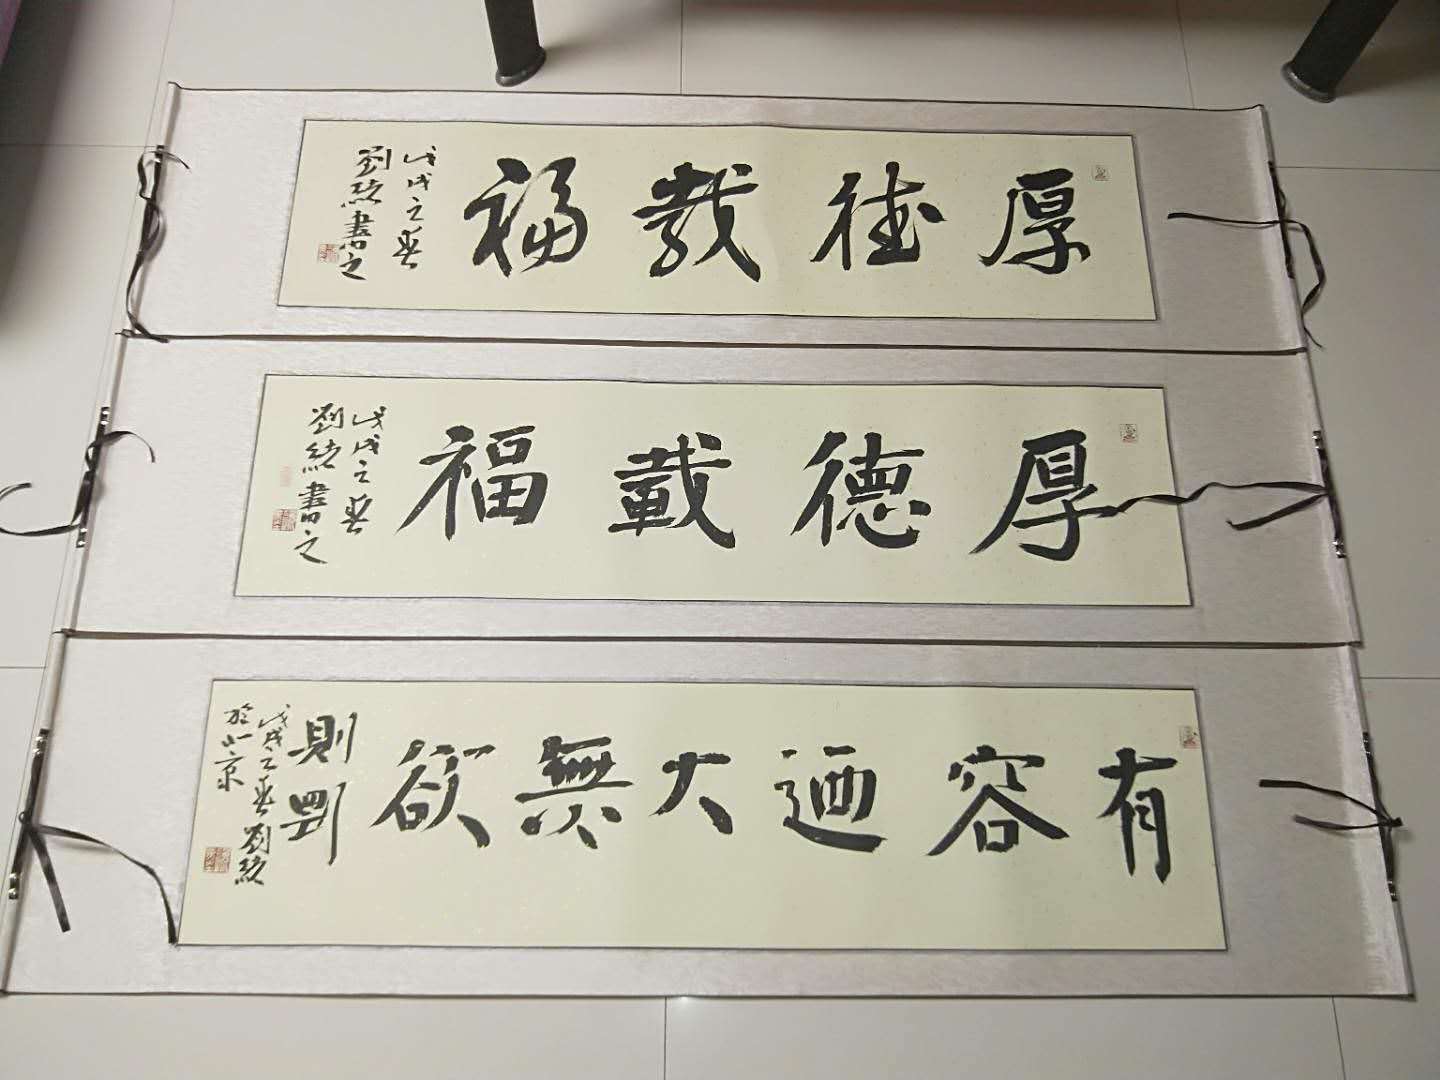 厚德载福
戊戌之春
劉 書之
厚德載福
戊戌之春
劉 書之
有容迺大無欲則剛
戊戌之春劉
於北京